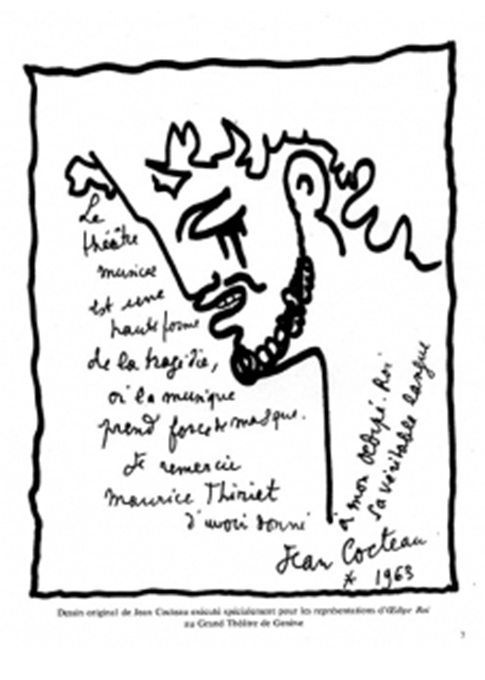 Le
théâtre
musical
est une
haute forme
de la tragédie,
où la musique
prend force de masque.
Je remercie
Maurice Thiriet
d'avoir donné
à mon Oedipe-Roi
sa véritable langue
Jean Cocteau
* 1963
Dessin original de Jean Cocteau exécuté spécialement pour les représentations d'Œdipe Roi
au Grand Théâtre de Genève